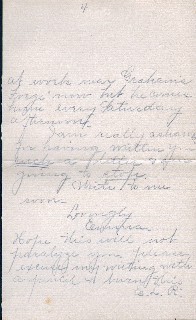 4
at work near Graham's
now but he comes
home every Saturday
afternoon.
I am really ashamed
for having written you
such a letter & am
going to stop.
Write to me
soon
Lovingly
Hope this will not
paralyze you please
excuse my writing with
a pencil & burn this